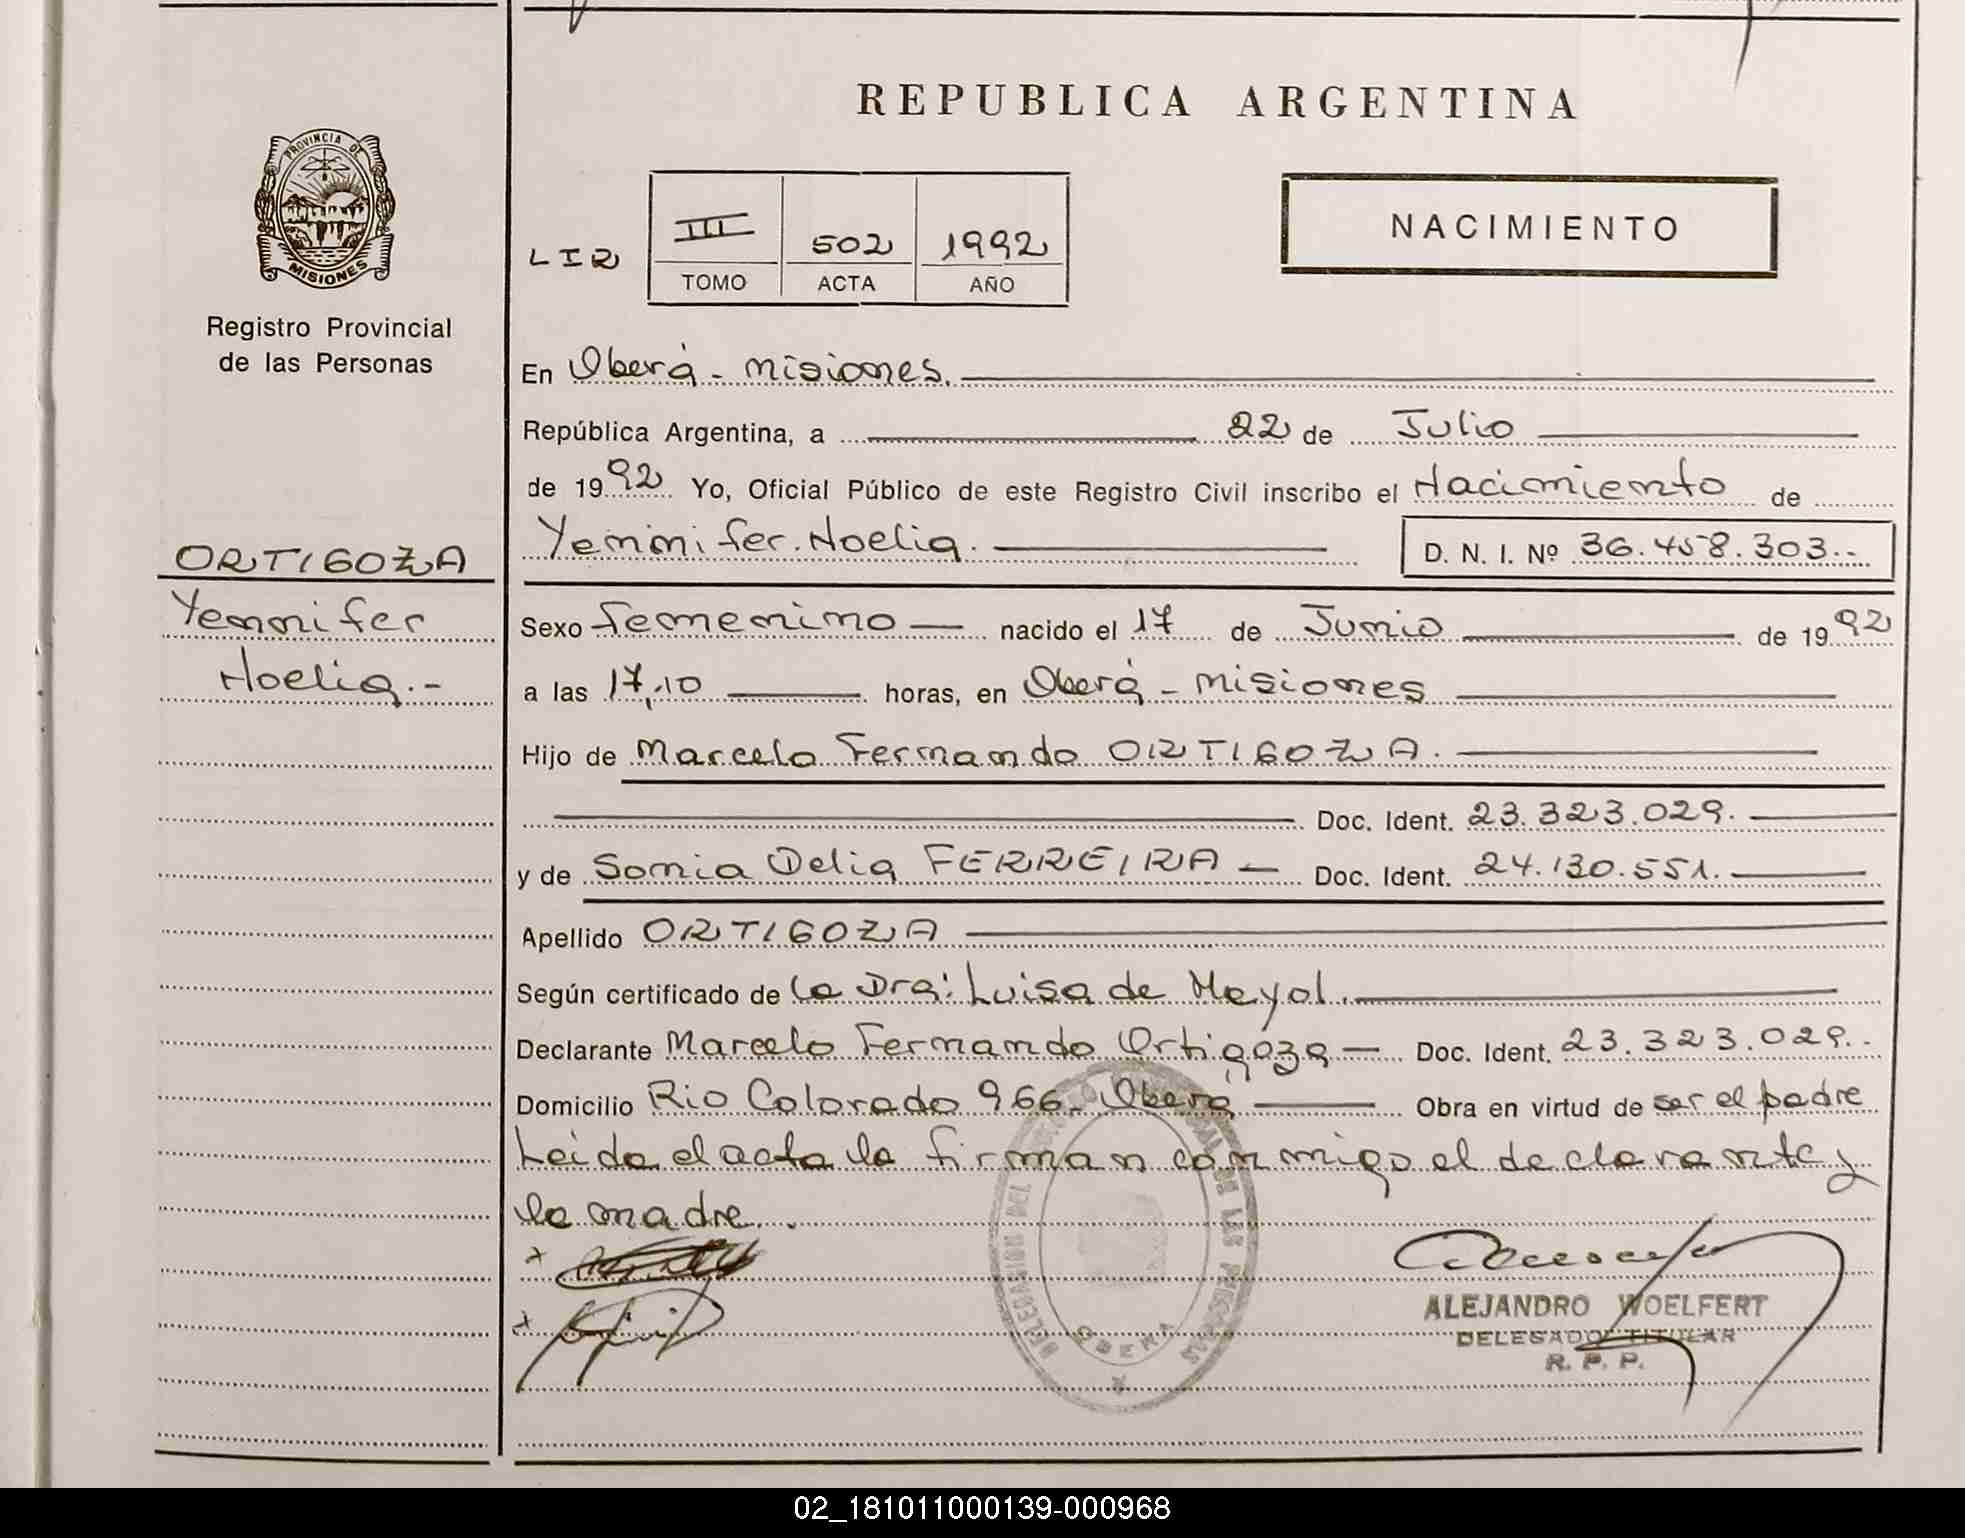 REPUBLICA ARGENTINA
PROVINCIA DE
MISIONES
Registro Provincial
de las Personas
NACIMIENTO
LIR III 502 1992
TOMO ACTA AÑO
En Oberá - Misiones.
República Argentina, a 22 de Julio
de 1992 Yo, Oficial Público de este Registro Civil inscribo el Nacimiento de
Yennifer Noelia. D. N. I. Nº 36.458.303.-
ORTIGOZA
Yennifer
Noelia.-
Sexo femenino nacido el 17 de Junio de 1992
a las 17,10 horas, en Oberá - Misiones
Hijo de Marcelo Fernando ORTIGOZA.
Doc. Ident. 23.323.029.
y de Sonia Delia FERREIRA Doc. Ident. 24.130.551.
Apellido ORTIGOZA
Según certificado de la Dra: Luisa de Meyol.
Declarante Marcelo Fernando Ortigoza Doc. Ident. 23.323.029.-
Domicilio Rio Colorado 966. Oberá Obra en virtud de ser el padre
Leida el acta la firman conmigo el declarante y
la madre.
DELEGACION DEL REGISTRO PROVINCIAL DE LAS PERSONAS
OBERA
ALEJANDRO WOELFERT
DELEGADO TITULAR
R. P. P.
02_181011000139-000968